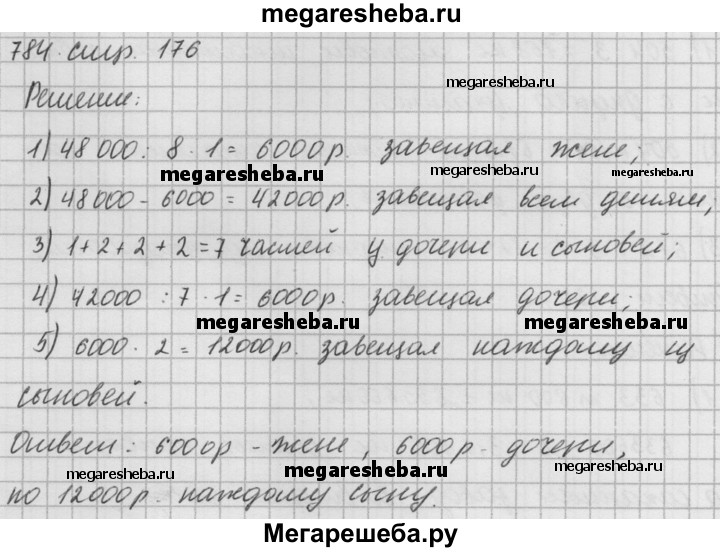 megaresheba.ru
784. стр. 176
megaresheba.ru
Решение:
1) 48 000 : 8 · 1 = 6000р. завещал жене;
megaresheba.ru megaresheba.ru megaresheba.ru
2) 48000 - 6000 = 42000р. завещал всем детям;
3) 1+2+2+2=7 частей у дочери и сыновей;
4) 42000 : 7 · 1 = 6000р. завещал дочери;
megaresheba.ru megaresheba.ru
5) 6000 · 2 = 12000р. завещал каждому из
сыновей.
Ответ: 6000р - жене, 6000р - дочери,
megaresheba.ru megaresheba.ru megaresheba.ru
по 12000р. каждому сыну.
Мегарешеба.ру